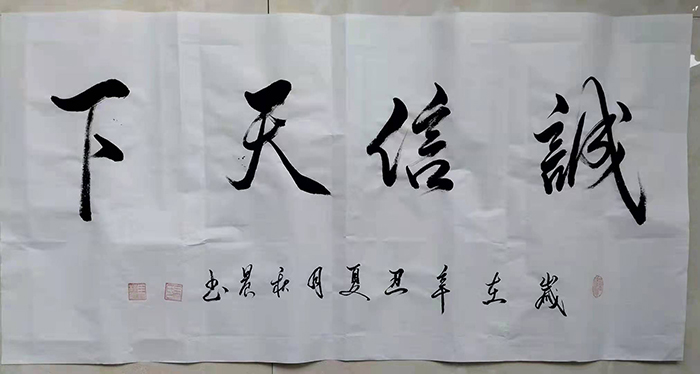 誠信天下
歲在辛丑夏月秋晨书